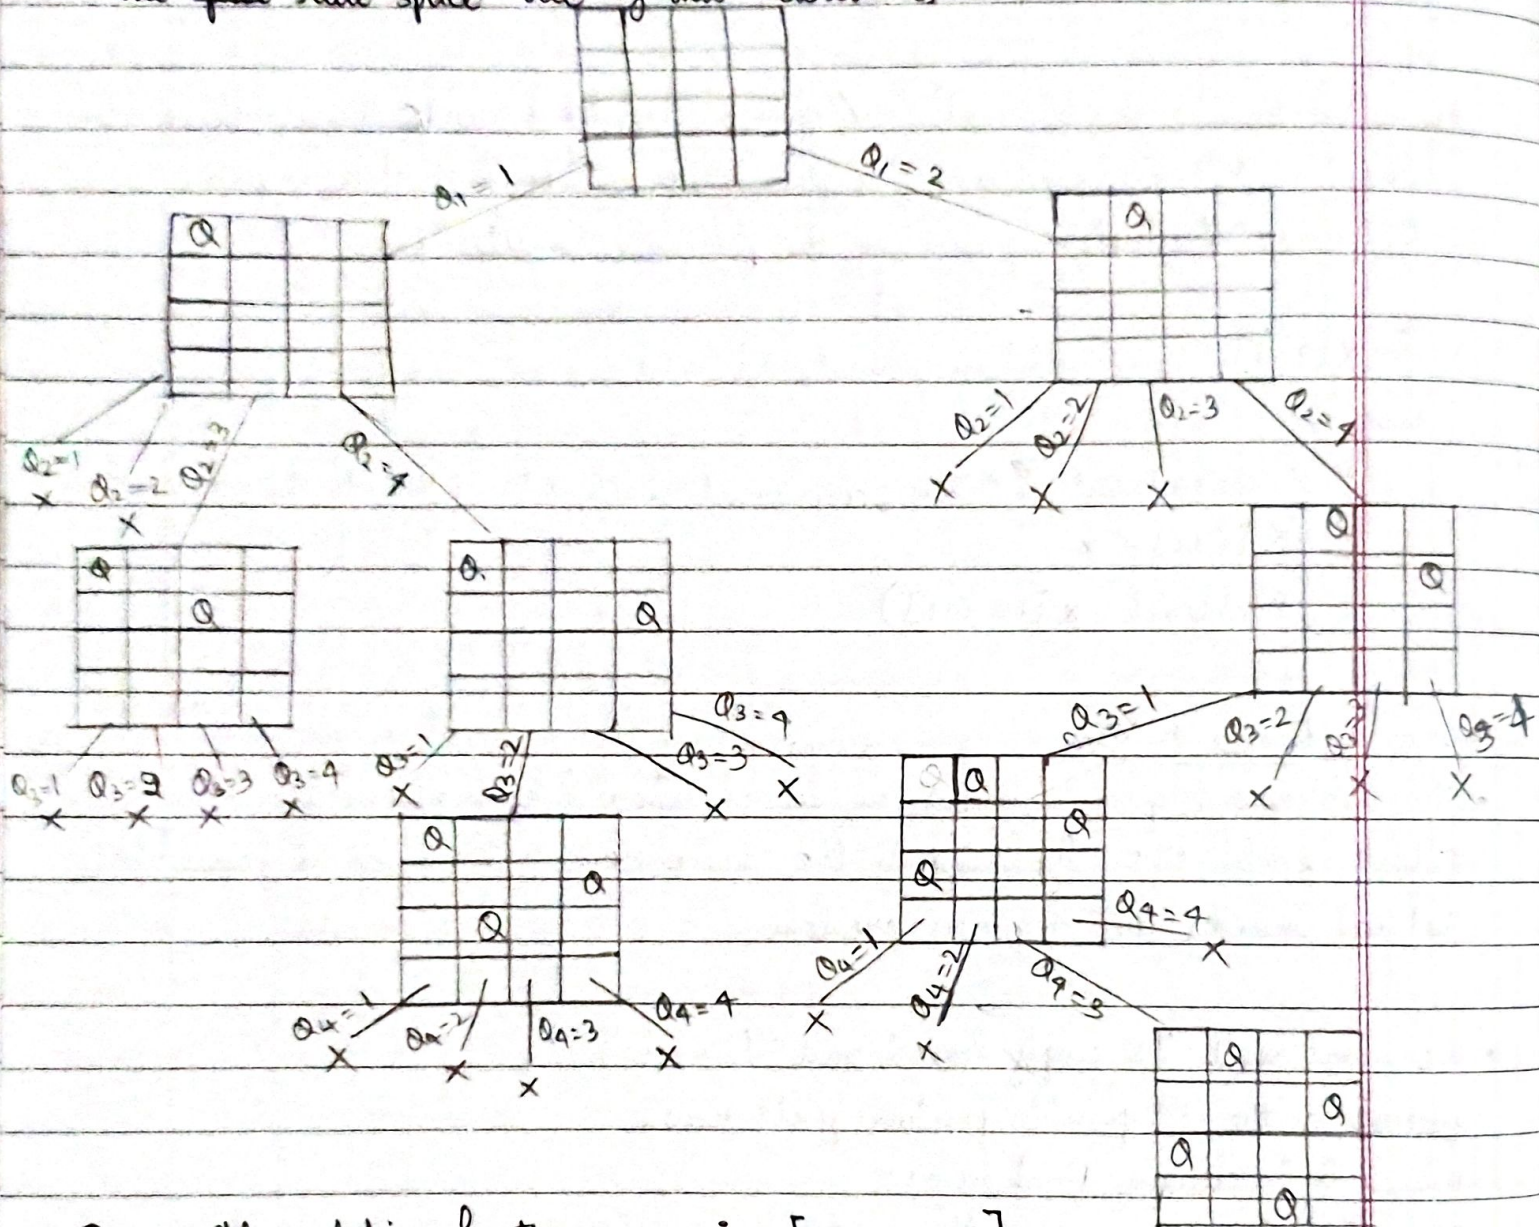 state space
Q1 = 1
Q1 = 2
Q
Q
Q2=1
Q2=2
Q2=3
Q2=4
Q2=1
Q2=2
Q2=3
Q2=4
X
X
X
X
X
Q
Q
Q
Q
Q
Q
Q3=1
Q3=2
Q3=3
Q3=4
X
X
X
X
Q3=1
Q3=2
Q3=3
Q3=4
X
X
X
Q3=1
Q3=2
Q3=3
Q3=4
X
X
X
Q
Q
Q
Q
Q
Q
Q
Q4=1
Q4=2
Q4=3
Q4=4
X
X
X
X
Q4=1
Q4=2
Q4=3
Q4=4
X
X
X
Q
Q
Q
Q